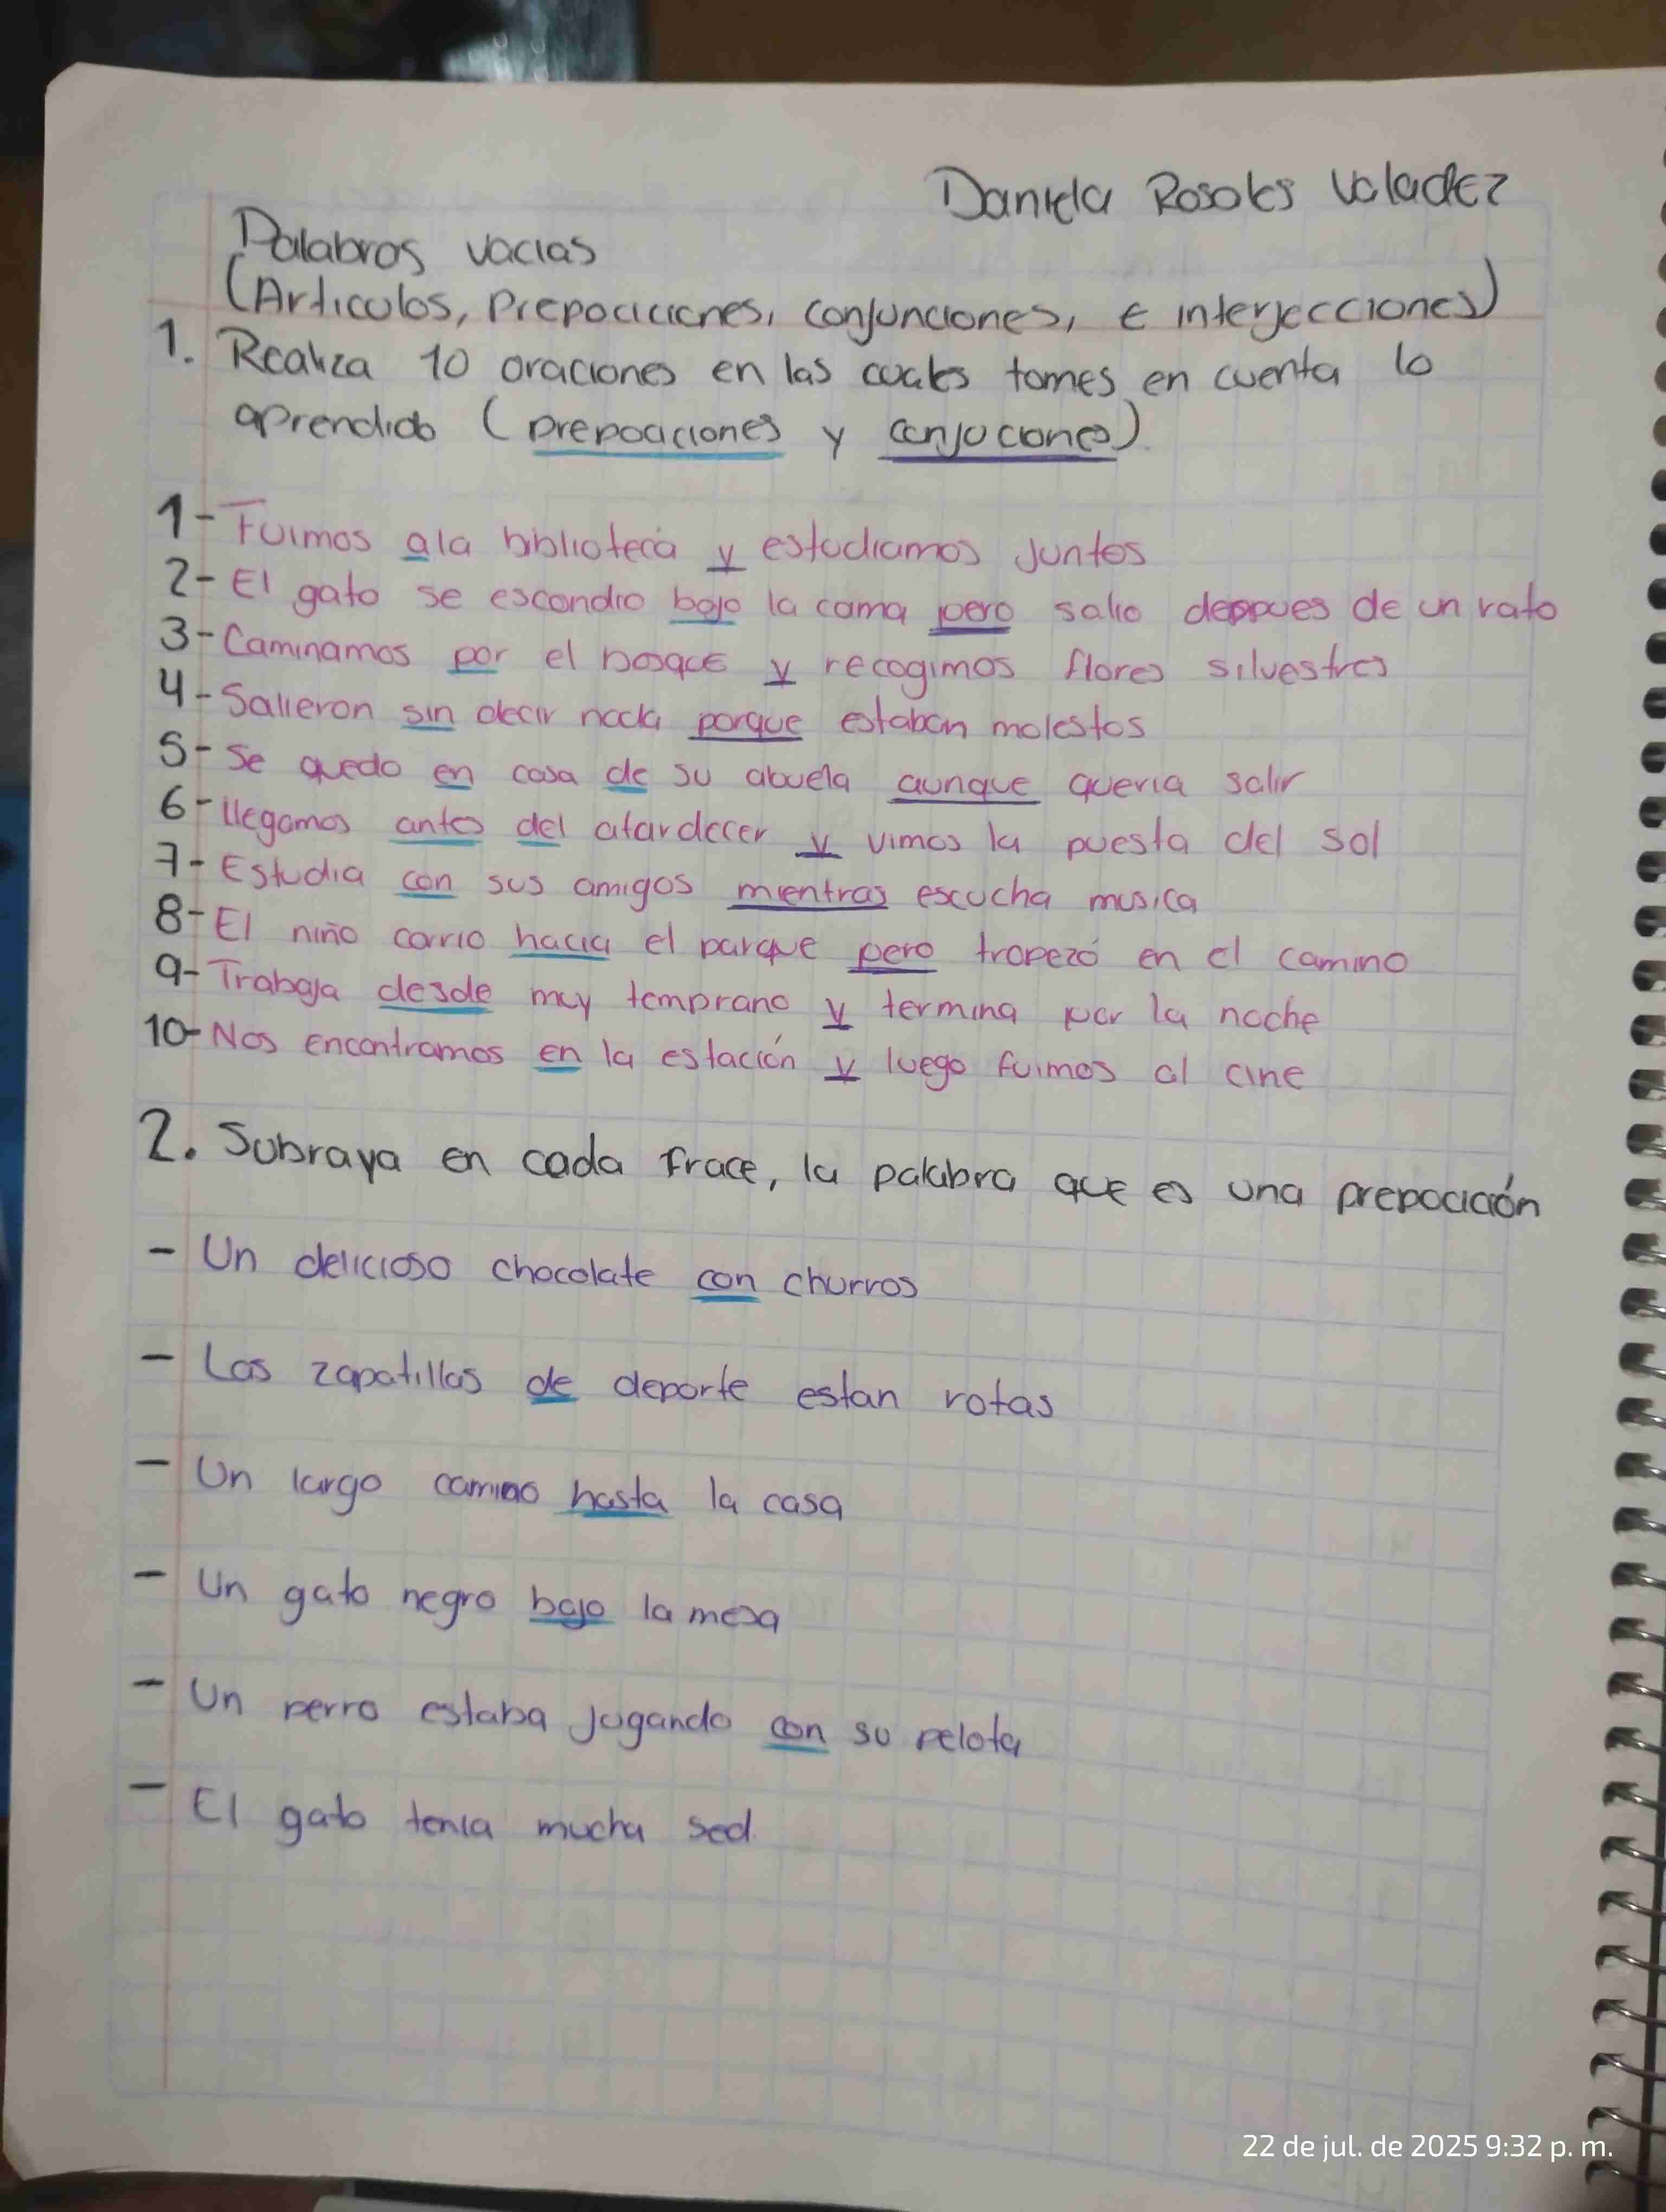 Daniela Rosales Valadez
Palabras vacias
(Articulos, Prepociciones, conjunciones, e interjecciones)
1. Realiza 10 oraciones en las cuales tomes en cuenta lo
aprendido (prepociciones y conjuciones).
1- Fuimos ala biblioteca y estudiamos juntos
2- El gato se escondio bajo la cama pero salio deppues de un rato
3- Caminamos por el bosque y recogimos flores silvestres
4- Salieron sin decir nada porque estaban molestos
5- Se quedo en casa de su abuela aunque queria salir
6- llegamos antes del atardecer y vimos la puesta del sol
7- Estudia con sus amigos mientras escucha musica
8- El niño corrio hacia el parque pero tropezó en el camino
9- Trabaja desde muy temprano y termina por la noche
10- Nos encontramos en la estación y luego fuimos al cine
2. Subraya en cada frace, la palabra que es una prepocición
- Un delicioso chocolate con churros
- Las zapatillas de deporte estan rotas
- Un largo camino hasta la casa
- Un gato negro bajo la mesa
- Un perro estaba jugando con su pelota
- El gato tenia mucha sed.
22 de jul. de 2025 9:32 p. m.